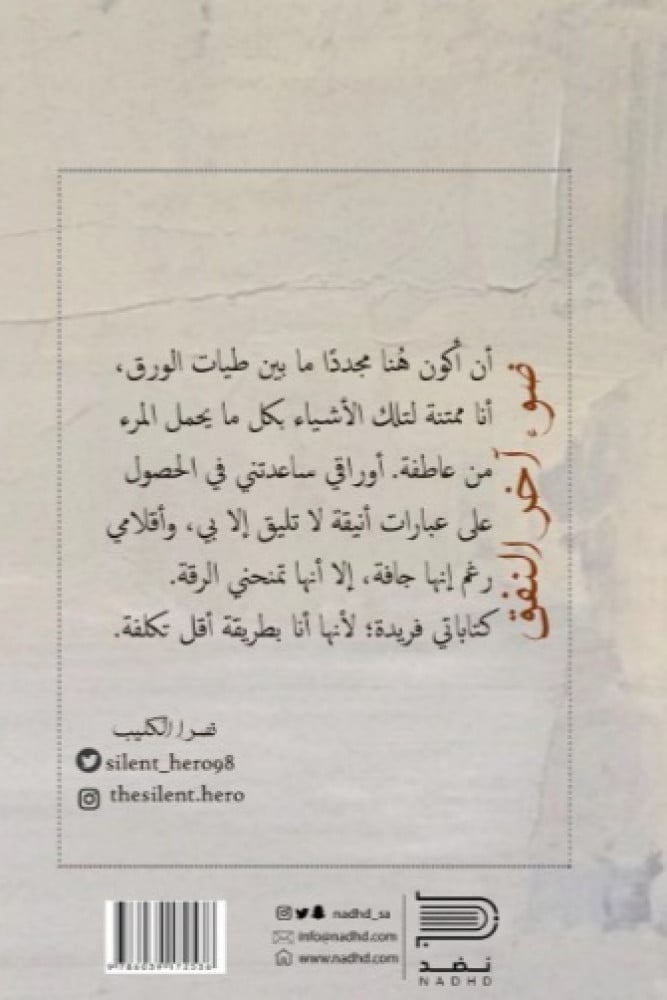 ضوء آخر النفق
أن أكون هُنا مجددًا ما بين طيات الورق،
أنا ممتنة لتلك الأشياء بكل ما يحمل المرء
من عاطفة. أوراقي ساعدتني في الحصول
على عبارات أنيقة لا تليق إلا بي، وأقلامي
رغم إنها جافة، إلا أنها تمنحني الرقة.
كتاباتي فريدة؛ لأنها أنا بطريقة أقل تكلفة.
الكليب
silent_hero98
thesilent.hero
nadhd_sa
info@nadhd.com
www.nadhd.com
نضد
NADHD